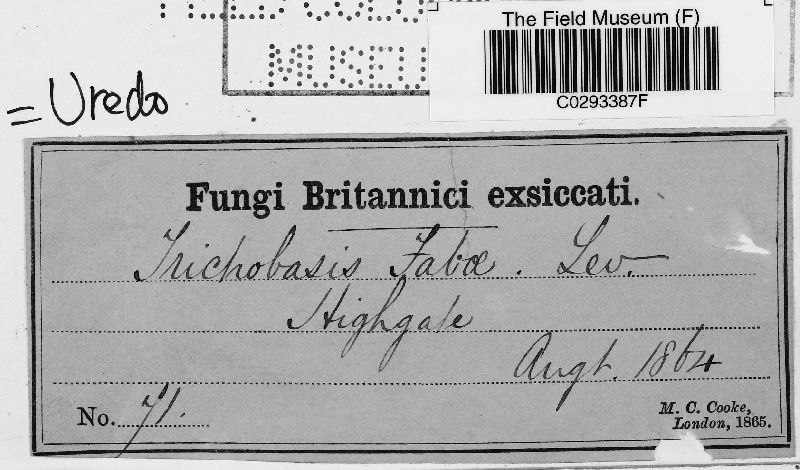 MUSEU
The Field Museum (F)
C0293387F
= Uredo
Fungi Britannici exsiccati.
Trichobasis Fabæ. Lev.
Highgate
Augt. 1864
No. 71.
M. C. Cooke,
London, 1865.